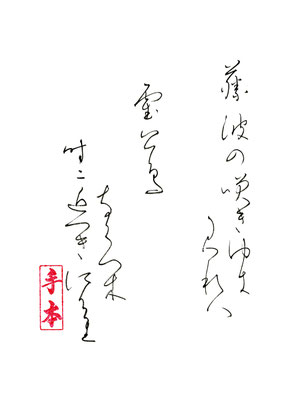 藤波の咲きゆく
見れハ
霍公鳥
なくへ木
時ニ近つきにけり
手本